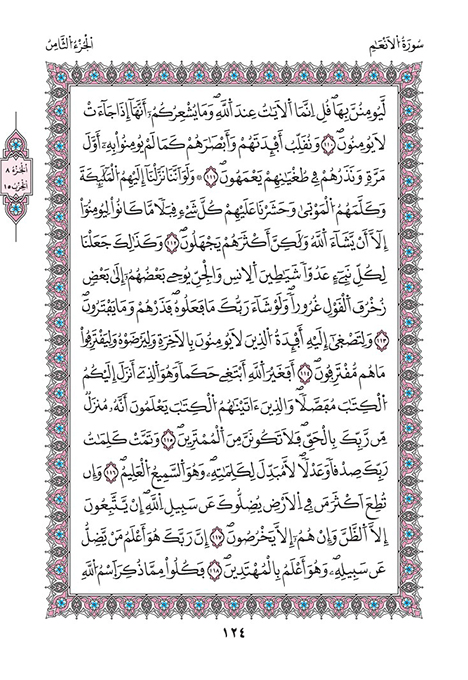 سُورَةُ الْأَنْعَامِ
الْجُزْءُ الثَّامِنُ
الْجُزْءُ ٨
الْحِزْبُ ١٥
لَّيُومِنُنَّ بِهَا قُلِ اِنَّمَا اَلَايَٰتُ عِندَ اَللَّهِ وَمَا يُشْعِرُكُمُۥٓ أَنَّهَآ إِذَا جَآءَتْ
لَا يُومِنُونَ ١١٠ وَنُقَلِّبُ أَفْـِٕدَتَهُمْ وَأَبْصَٰرَهُمْ كَمَا لَمْ يُومِنُواْ بِهِۦٓ أَوَّلَ
مَرَّةٖ وَنَذَرُهُمْ فِے طُغْيَٰنِهِمْ يَعْمَهُونَ ١١١ ۞ وَلَوَ اَنَّنَا نَزَّلْنَآ إِلَيْهِمُ اُلْمَلَٰٓئِكَةَ
وَكَلَّمَهُمُ اُلْمَوْت۪يٰ وَحَشَرْنَا عَلَيْهِمْ كُلَّ شَےْءٖ قِبَلاٗ مَّا كَانُواْ لِيُومِنُوٓاْ
إِلَّآ أَنْ يَّشَآءَ اَللَّهُ وَلَٰكِنَّ أَكْثَرَهُمْ يَجْهَلُونَ ١١٢ وَكَذَٰلِكَ جَعَلْنَا
لِكُلِّ نَبِےٓءٍ عَدُوّاٗ شَيَٰطِينَ اَلِانسِ وَالْجِنِّ يُوحِے بَعْضُهُمُۥٓ إِلَىٰ بَعْضٖ
زُخْرُفَ اَلْقَوْلِ غُرُوراٗ وَلَوْ شَآءَ رَبُّكَ مَا فَعَلُوهُ فَذَرْهُمْ وَمَا يَفْتَرُونَ
١١٣ وَلِتَصْغ۪يٰٓ إِلَيْهِ أَفْـِٕدَةُ اُلذِينَ لَا يُومِنُونَ بِالَاخِرَةِ وَلِيَرْضَوْهُ وَلِيَقْتَرِفُواْ
مَا هُم مُّقْتَرِفُونَ ١١٤ أَفَغَيْرَ اَللَّهِ أَبْتَغِے حَكَماٗ وَهُوَ اَلذِےٓ أَنزَلَ إِلَيْكُمُ
اُلْكِتَٰبَ مُفَصَّلاٗ وَالذِينَ ءَاتَيْنَٰهُمُ اُلْكِتَٰبَ يَعْلَمُونَ أَنَّهُۥ مُنزَلٞ
مِّن رَّبِّكَ بِالْحَقِّ فَلَا تَكُونَنَّ مِنَ اَلْمُمْتَرِينَ ١١٥ وَتَمَّتْ كَلِمَٰتُ
رَبِّكَ صِدْقاٗ وَعَدْلاٗ لَّا مُبَدِّلَ لِكَلِمَٰتِهِۦ وَهُوَ اَلسَّمِيعُ اُلْعَلِيمُ ١١٦ وَإِن
تُطِعَ اَكْثَرَ مَن فِے اِلَارْضِ يُضِلُّوكَ عَن سَبِيلِ اِللَّهِ إِنْ يَّتَّبِعُونَ
إِلَّا اَلظَّنَّ وَإِنْ هُمُۥٓ إِلَّا يَخْرُصُونَ ١١٧ إِنَّ رَبَّكَ هُوَ أَعْلَمُ مَنْ يَّضِلُّ
عَن سَبِيلِهِۦ وَهُوَ أَعْلَمُ بِالْمُهْتَدِينَ ١١٨ فَكُلُواْ مِمَّا ذُكِرَ اَسْمُ اُللَّهِ
١٢٤